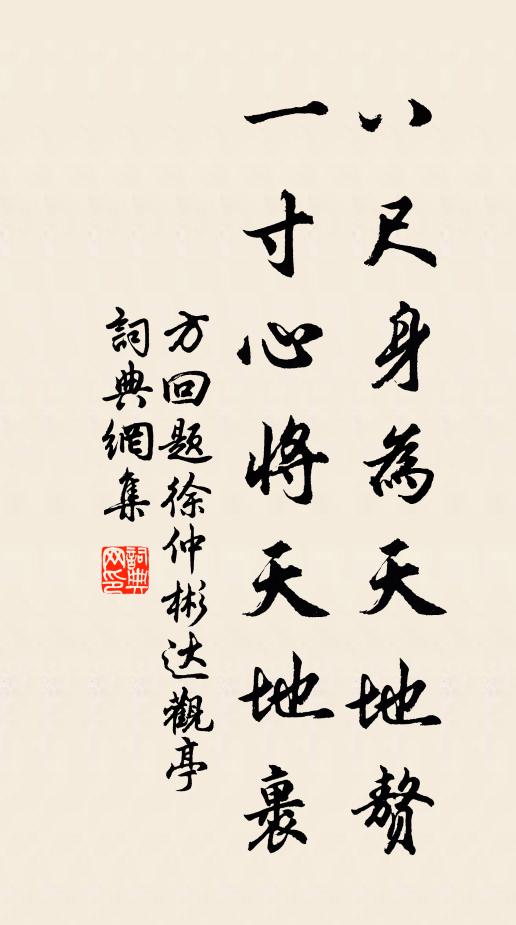 八尺身為天地贅
一寸心將天地裹
方回題徐仲彬达觀亭
詞典網集
詞典网印